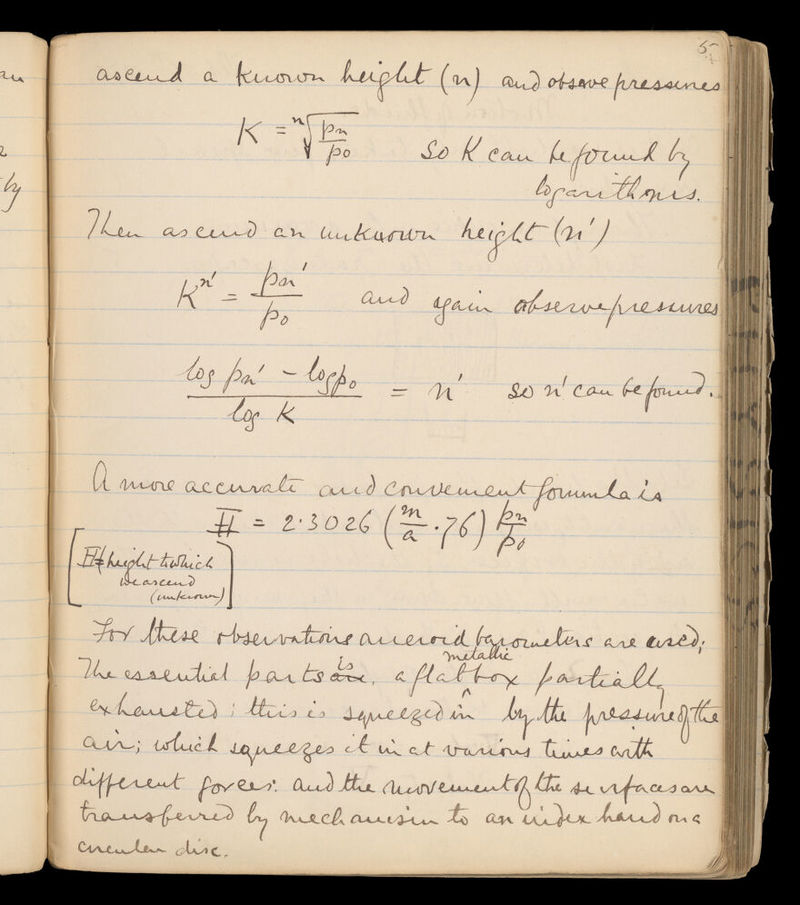 5
ascend a known height (n) and observe pressures
K = ⁿ√(pn/p0) so K can be found by
logarithms.
Then ascend an unknown height (n′)
K^n′ = pn′/p0 and again observe pressures
(log pn′ − log p0)/log K = n′ so n′ can be found.
A more accurate and convenient formula is
H = 2·3026 (m/a · 76) pn/p0
[H = height to which
we ascend
(unknown)]
For these observations aneroid barometers are used;
The essential parts are is, a flat metallic box partially
exhausted; this is squeezed in by the pressure of the
air; which squeezes it in at various times with
different forces: and the movement of the surfaces are
transferred by mechanism to an index hand on a
circular disc.
by